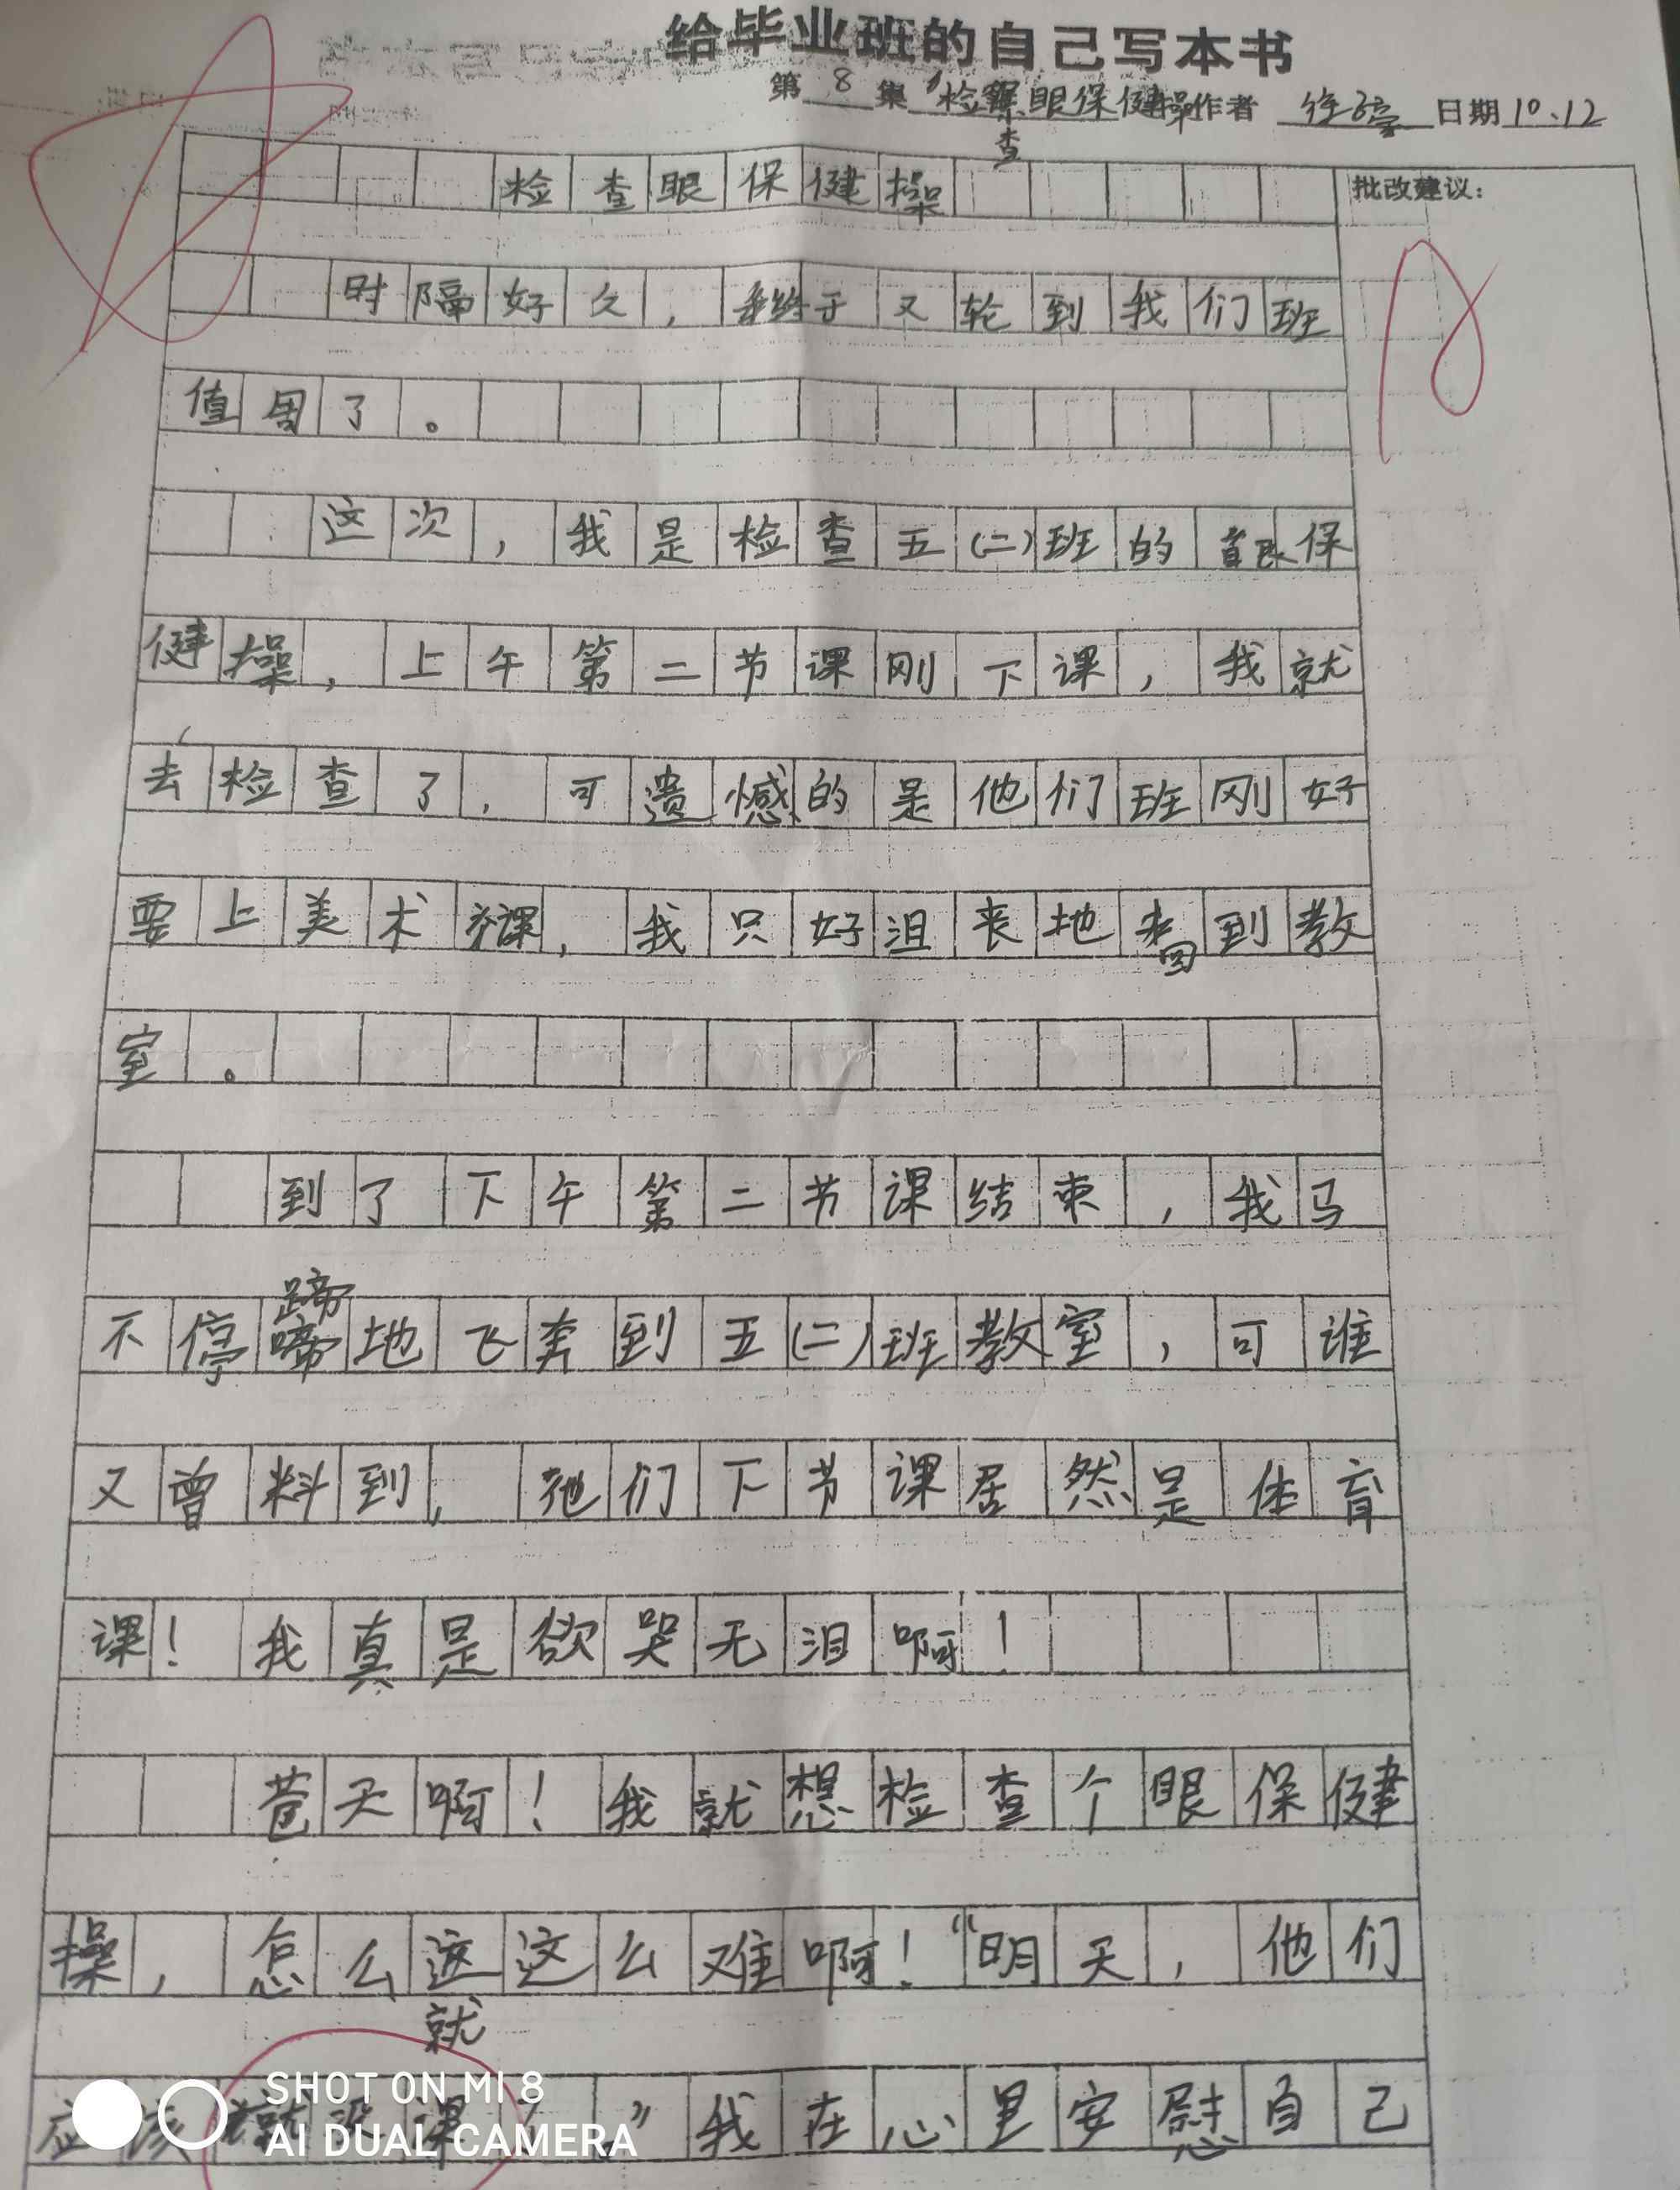 给毕业班的自己写本书
第 8 集 检查眼保健操 作者 徐 日期 10.12
检查眼保健操
批改建议：
时隔好久，终于又轮到我们班
值周了。
这次，我是检查五(二)班的眼保
健操，上午第二节课刚下课，我就
去检查了，可遗憾的是他们班刚好
要上美术课，我只好沮丧地回到教
室。
到了下午第二节课结束，我马
不停蹄地飞奔到五(二)班教室，可谁
又曾料到，他们下节课居然是体育
课！我真是欲哭无泪啊！
苍天啊！我就想检查个眼保健
操，怎么这这么难啊！“明天，他们
应该就没课 ”我在心里安慰自己
SHOT ON MI 8
AI DUAL CAMERA